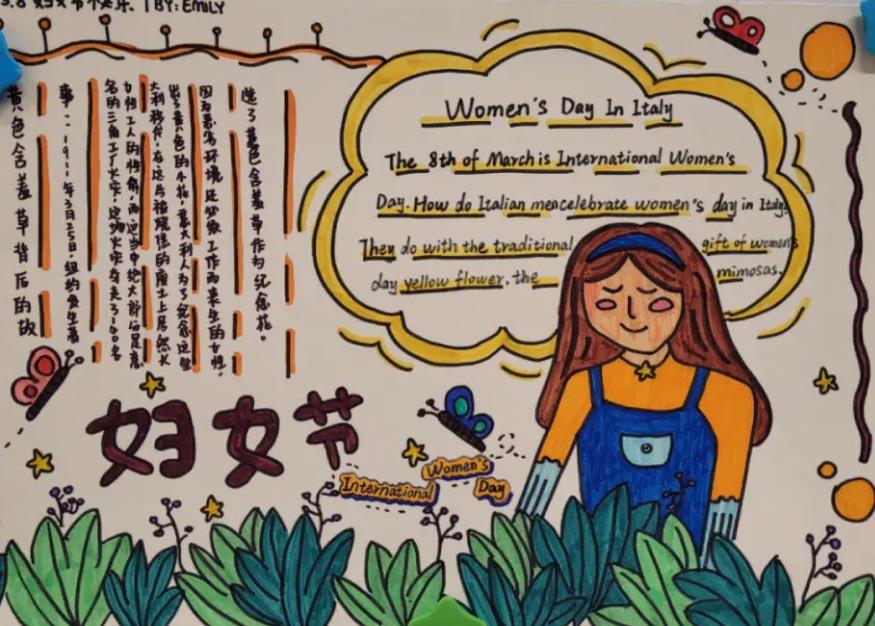 3.8 妇女节快乐. | BY: EMILY
Women's Day In Italy
The 8th of March is International Women's
Day. How do Italian mencelebrate women's day in Italy.
They do with the traditional gift of women's
day yellow flower, the mimosas.
黄色含羞草背后的故
事：1911年3月25日,纽约发生著
名的三角工厂火灾,这场火灾夺去了140名
女性工人的性命,而这当中绝大部分是意
大利移民,在这片被烧焦的废土上居然长
出了黄色的小花,意大利人为了纪念这些
因为恶劣环境还必须工作而丧生的女性,
选了黄色含羞草作为纪念花。
妇女节
International Women's Day